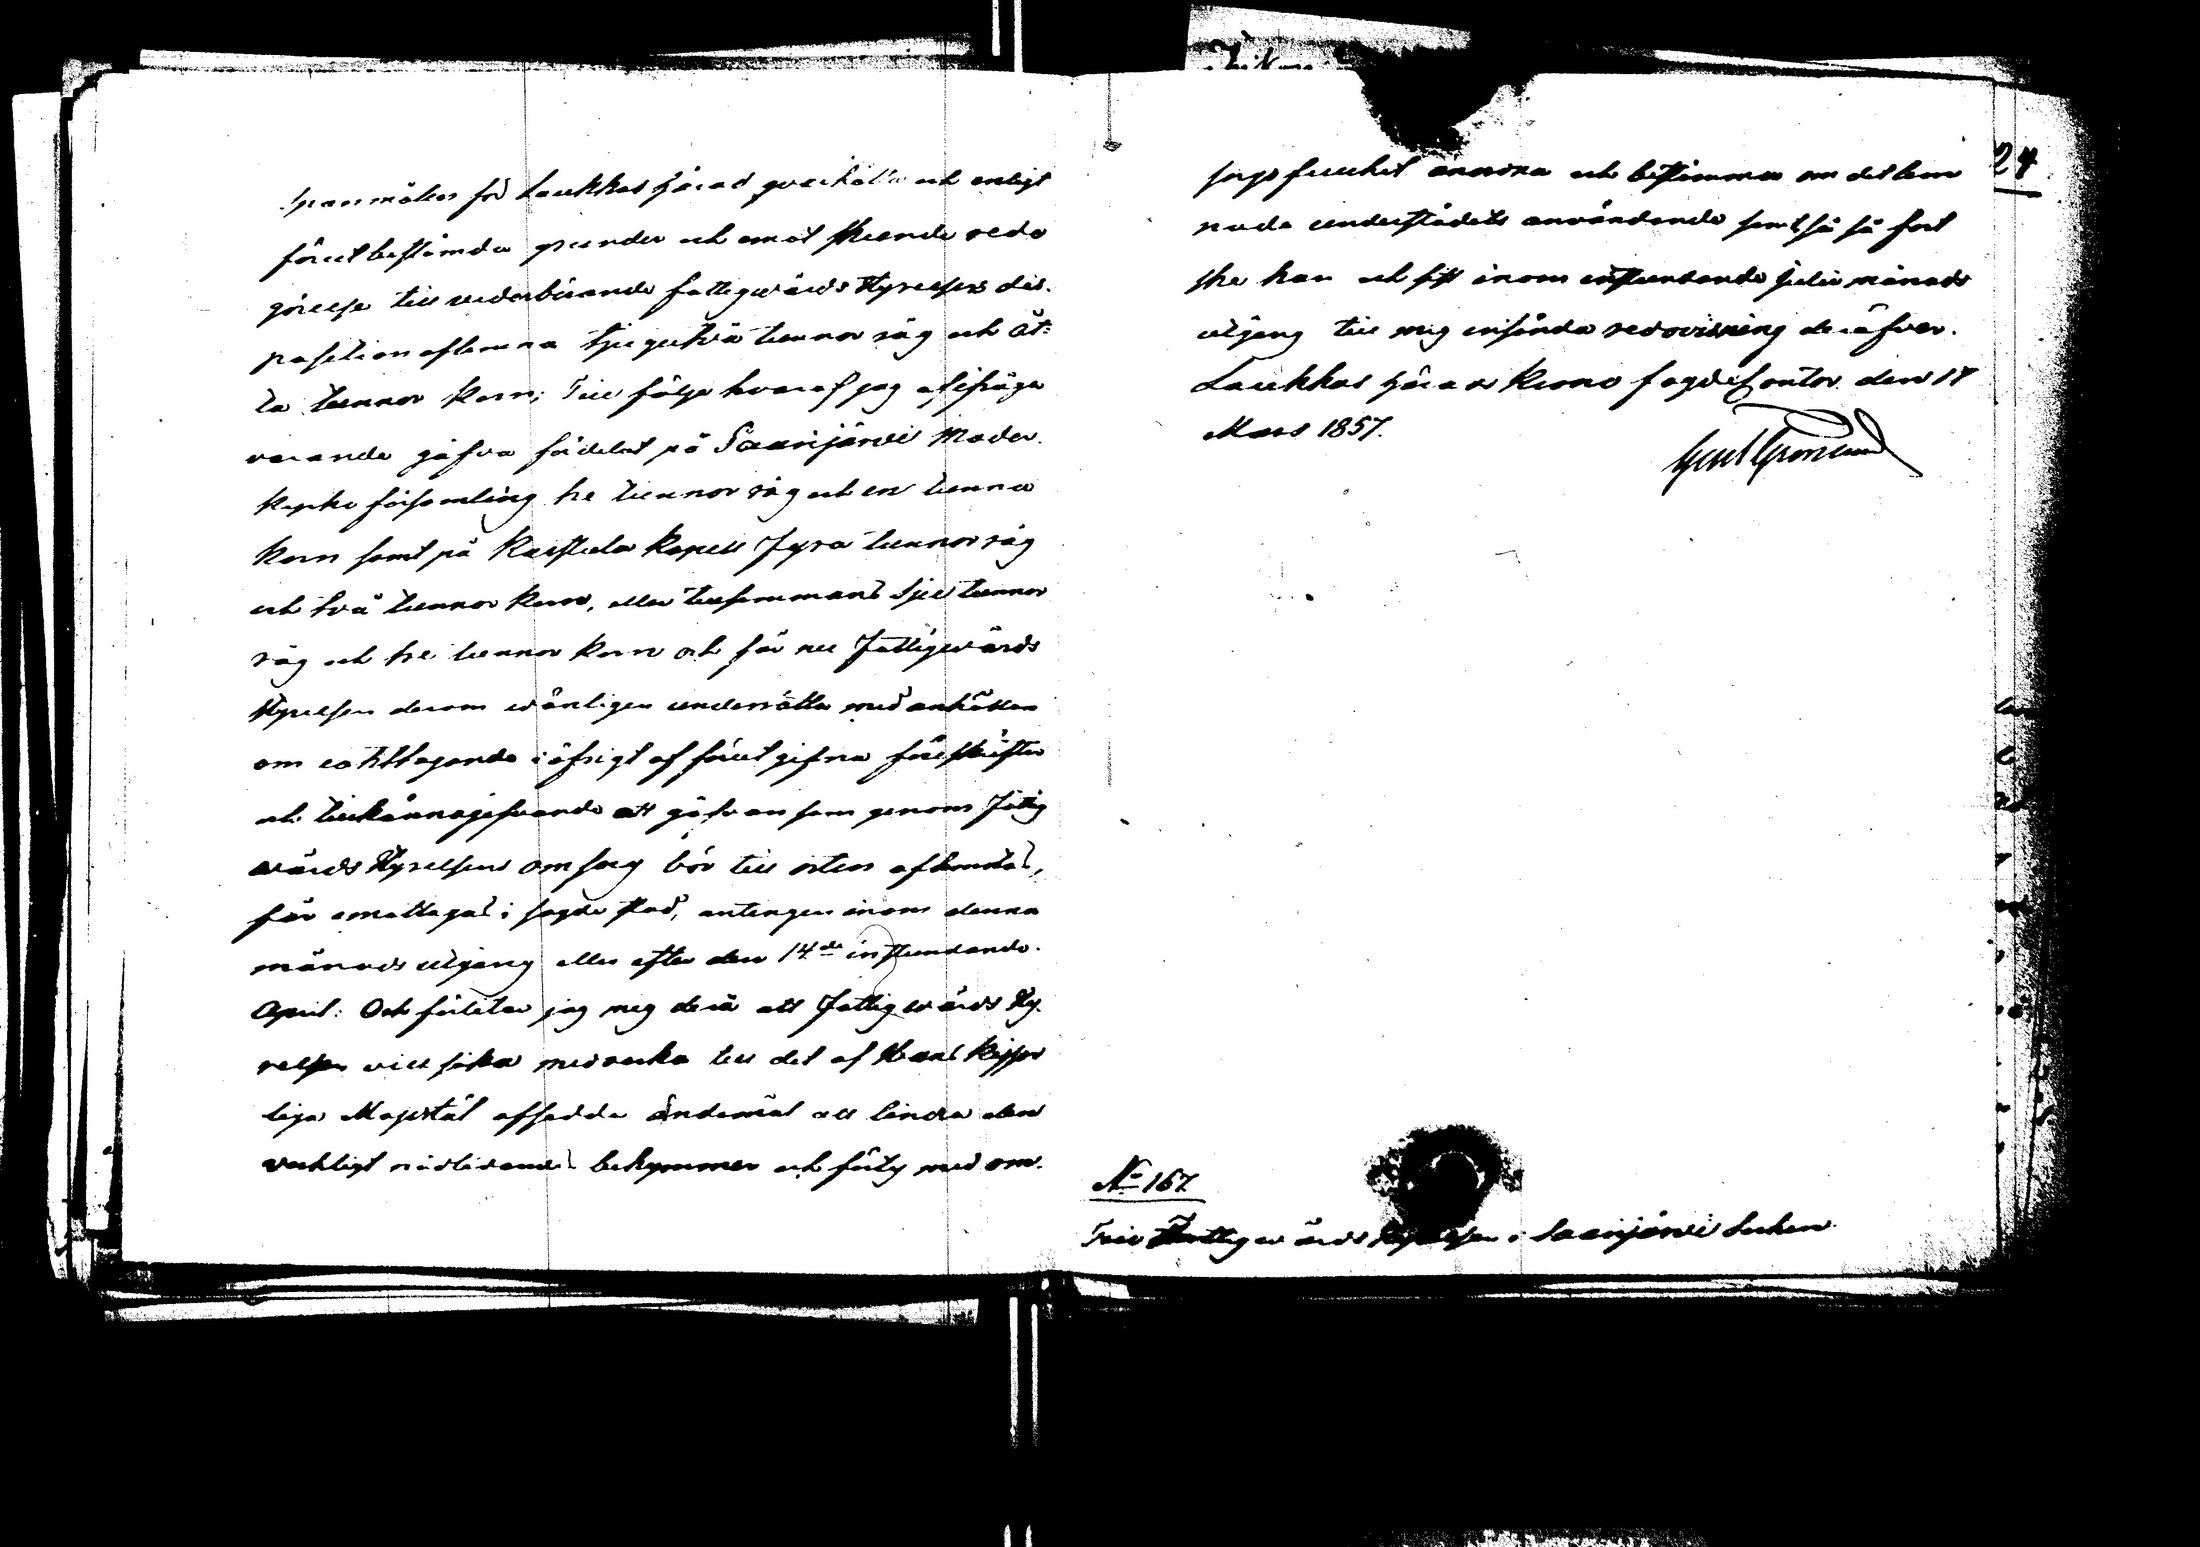 spanmålen för Laukkas Härad qvarhålla och enligt
förutbestämda grunder och emot skeende redo
görelse till vederbörande fattigwårds Styrelsers dis-
position aflemna tjugutvå tunnor råg och åt-
ta tunnor korn; Till följe hvaraf jag af ifråga
varande gåfva fördelat på Saarijärvi Moder-
kyrko församling tre tunnor råg och en tunna
korn samt på Karstula Kapell fyra tunnor råg
och två tunnor korn, eller tillsammans sju tunnor
råg och tre tunnor korn och får nu Fattigwårds
Styrelsen derom wänligen underrätta med anhållan
om iakttagande i öfrigt af förut gifna föreskrifter
och tillkännagifvande att gåfvan som genom Fattig
wårds Styrelsens omsorg bör till orten afhemtas,
får emottagas i sagde stad, antingen inom denna
månads utgång eller efter den 14de instundande
April: Och förlitar jag mig derå att Fattigwårds Sty-
relsen vill söka medverka till det af Hans Kejser
liga Majestät afsedda ändamål att lindra den
verkligt nödlidandes bekymmer och förty med om-
sorgsfullhet anordna och bestämma om det lem
nade understödets användande samt så fort
ske kan och sist inom instundande Julii månads
utgång till mig insända redovisning deröfver.
Laukkas Härads Krono fogde Contor den 17
Mars 1857.
24
No 167
Till Fattigwårds Styrelsen i Saarijärvi Socken